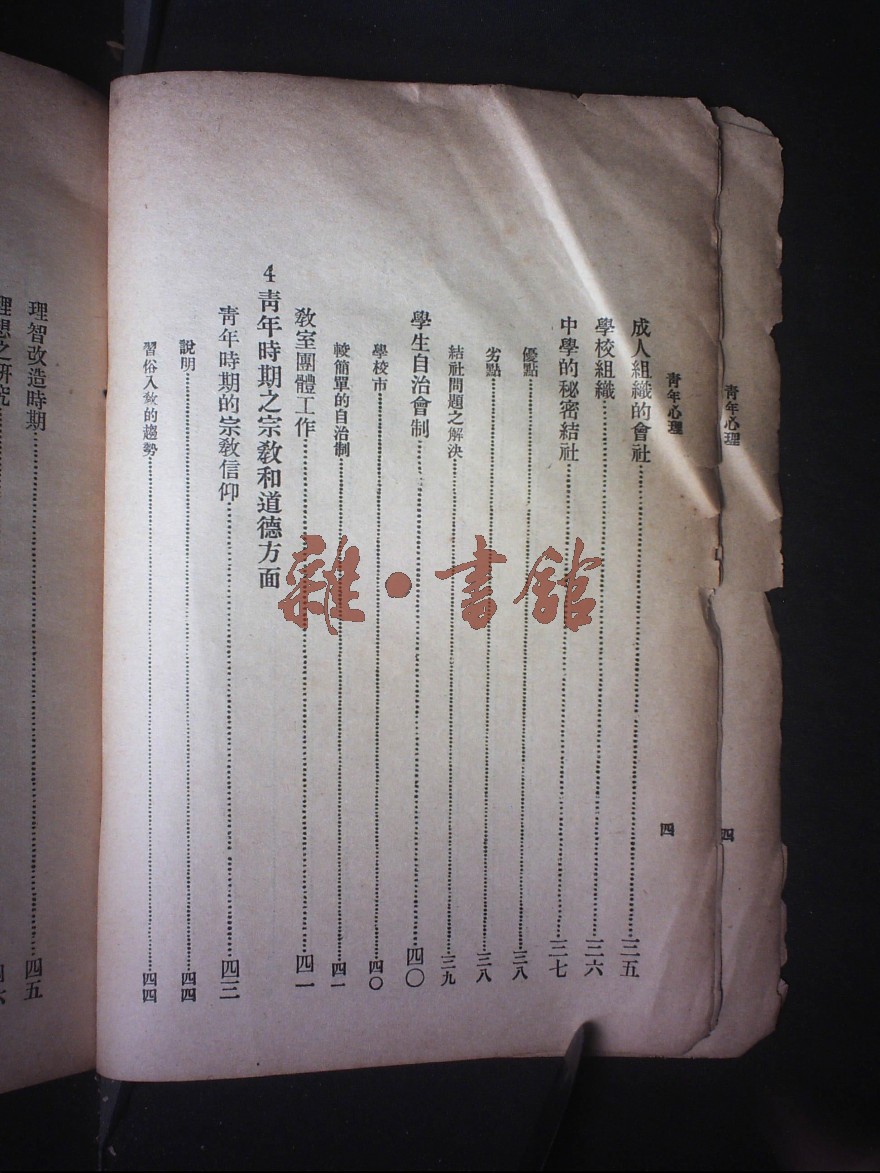 青年心理
四
青年心理　四
成人組織的會社……三五
學校組織……三六
中學的秘密結社……三七
優點……三八
劣點……三八
結社問題之解決……三九
學生自治會制……四〇
學校市……四〇
較簡單的自治制……四一
教室團體工作……四一
4 青年時期之宗教和道德方面
青年時期的宗教信仰……四三
說明……四四
習俗入教的趨勢……四四
理智改造時期……四五
理想之研究……四六
雜·書館